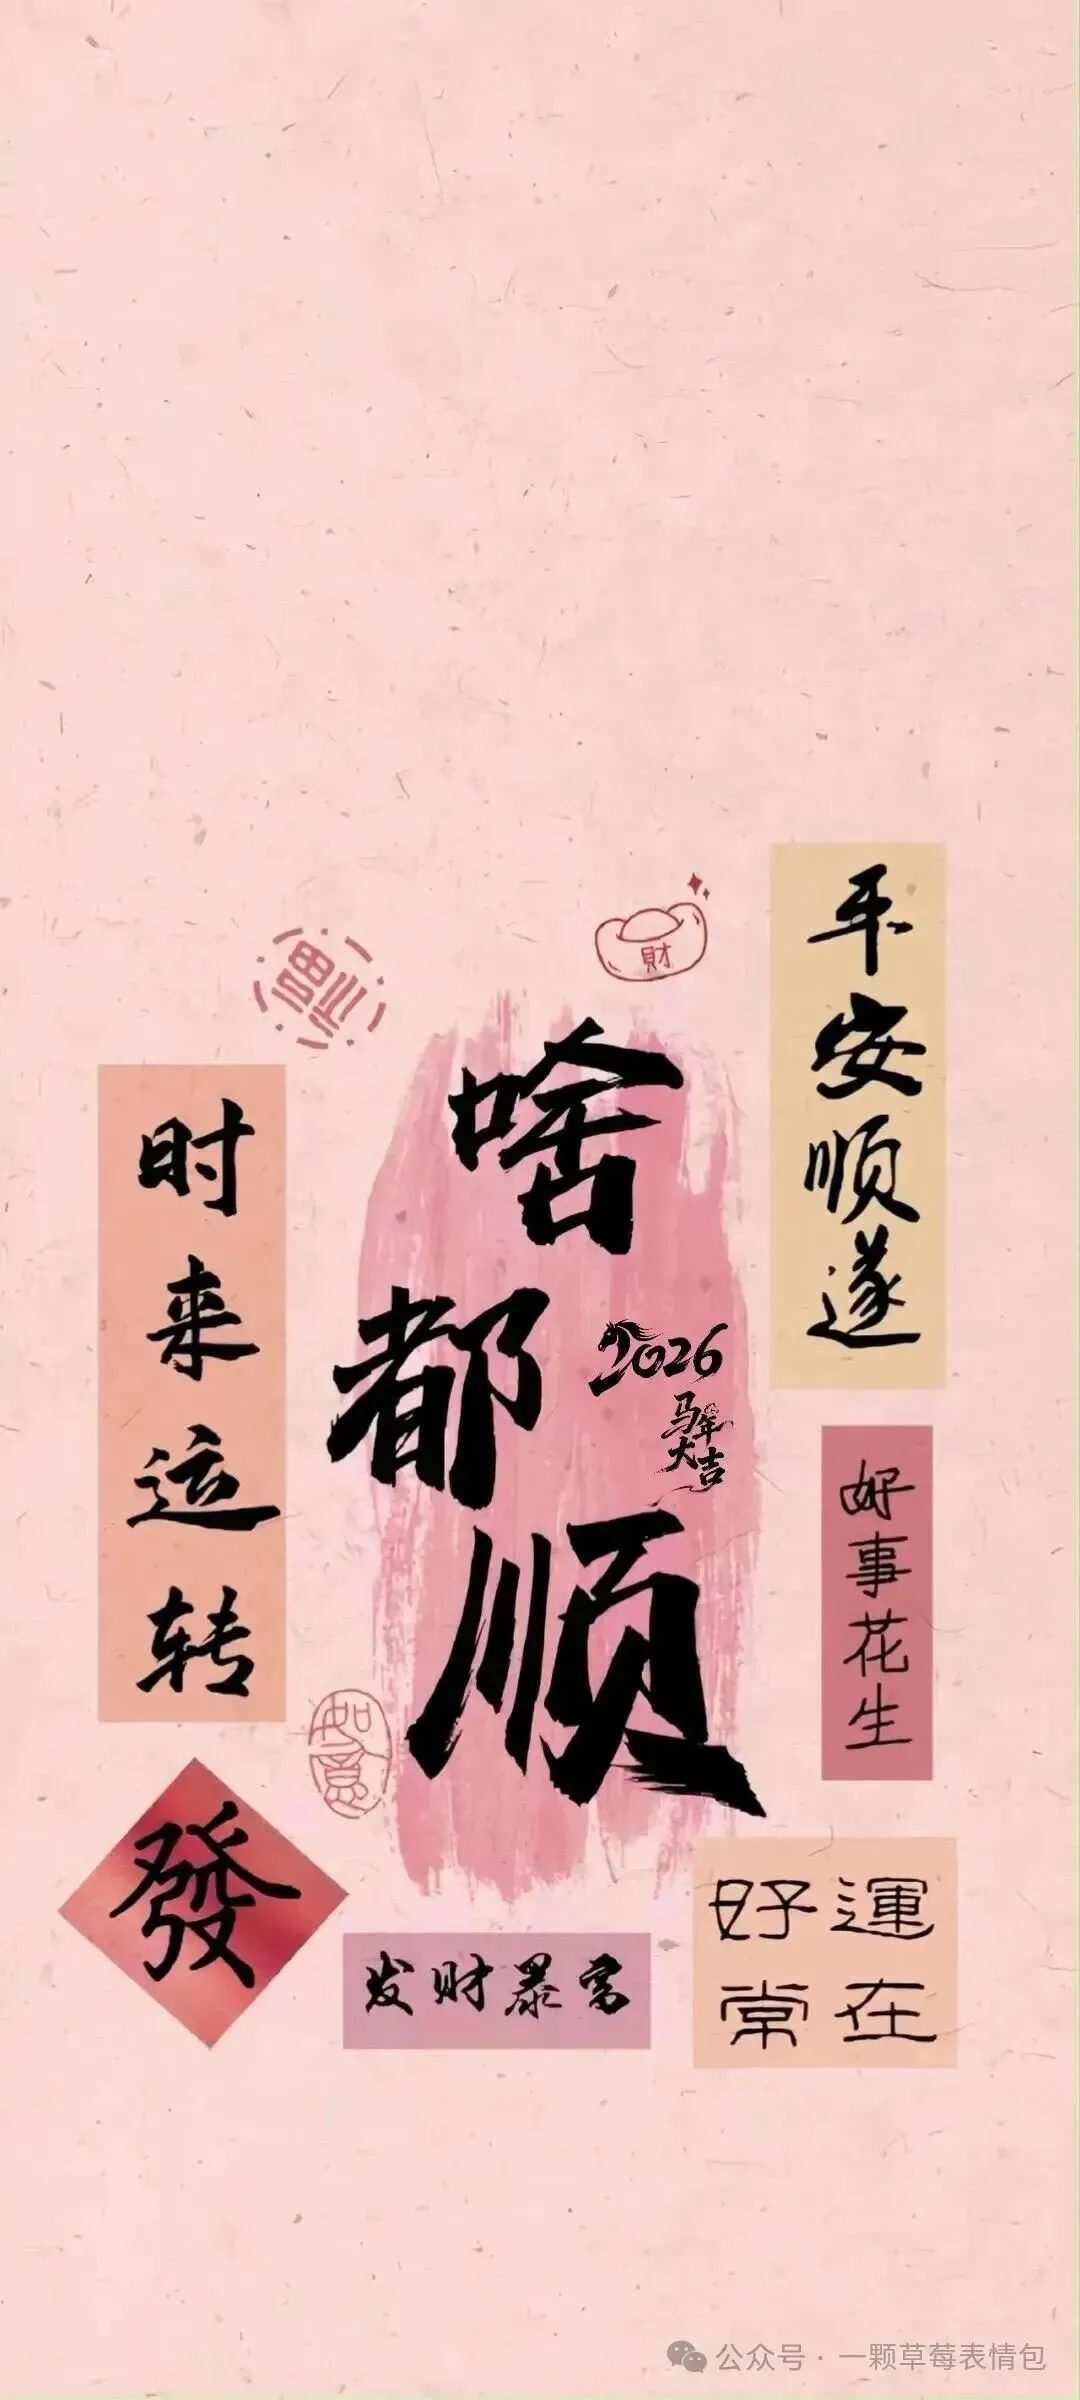 財
福
平安顺遂
啥都顺
时来运转
2026
马年大吉
好事花生
如意
發
发财暴富
好運
常在
公众号·一颗草莓表情包